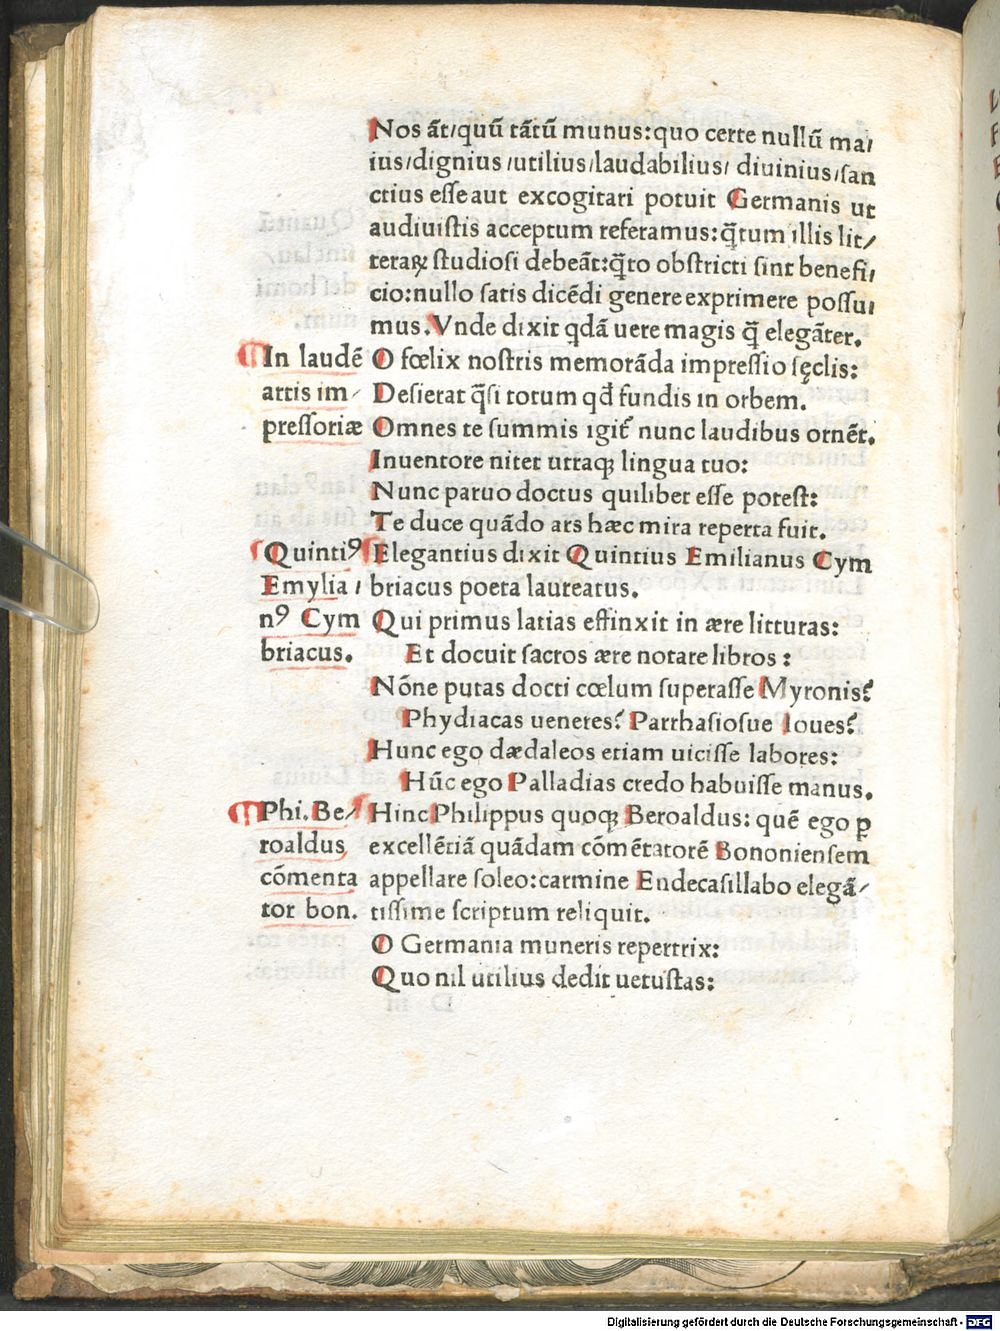 Nos āt/quū tātū munus:quo certe nullū ma/
ius/dignius/utilius/laudabilius/ diuinius/ſan
ctius eſſe aut excogitari potuit Germanis ut
audiuiſtis acceptum referamus:q̄tum illis lit/
teraꝝ ſtudioſi debeāt:q̄to obſtricti ſint benefi/
cio:nullo ſatis dicēdi genere exprimere poſſu/
mus.Vnde dixit qdā uere magis q̄ elegāter.
In laudē
artis im/
preſſoriæ
O fœlix noſtris memorāda impreſſio ſęclis:
Deſierat q̄ſi totum qđ fundis in orbem.
Omnes te ſummis igit̄ nunc laudibus ornēt.
Inuentore nitet utraqꝫ lingua tuo:
Nunc paruo doctus quilibet eſſe poteſt:
Te duce quādo ars hæc mira reperta fuit.
Quintiꝰ
Emylia/
nꝰ Cym
briacus.
Elegantius dixit Quintius Emilianus Cym
briacus poeta laureatus.
Qui primus latias effinxit in ære litturas:
Et docuit ſacros ære notare libros:
Nōne putas docti cœlum ſuperaſſe Myronis?
Phydiacas ueneres? Parrhaſioſue Ioues?
Hunc ego dædaleos etiam uiciſſe labores:
Hūc ego Palladias credo habuiſſe manus.
Phi.Be/
roaldus
cōmenta
tor bon.
Hinc Philippus quoqꝫ Beroaldus: quē ego ꝑ
excellētiā quādam cōmētatorē Bononienſem
appellare ſoleo:carmine Endecaſillabo elegā/
tiſſime ſcriptum reliquit.
O Germania muneris repertrix:
Quo nil utilius dedit uetuſtas:
Digitalisierung gefördert durch die Deutsche Forschungsgemeinschaft - DFG